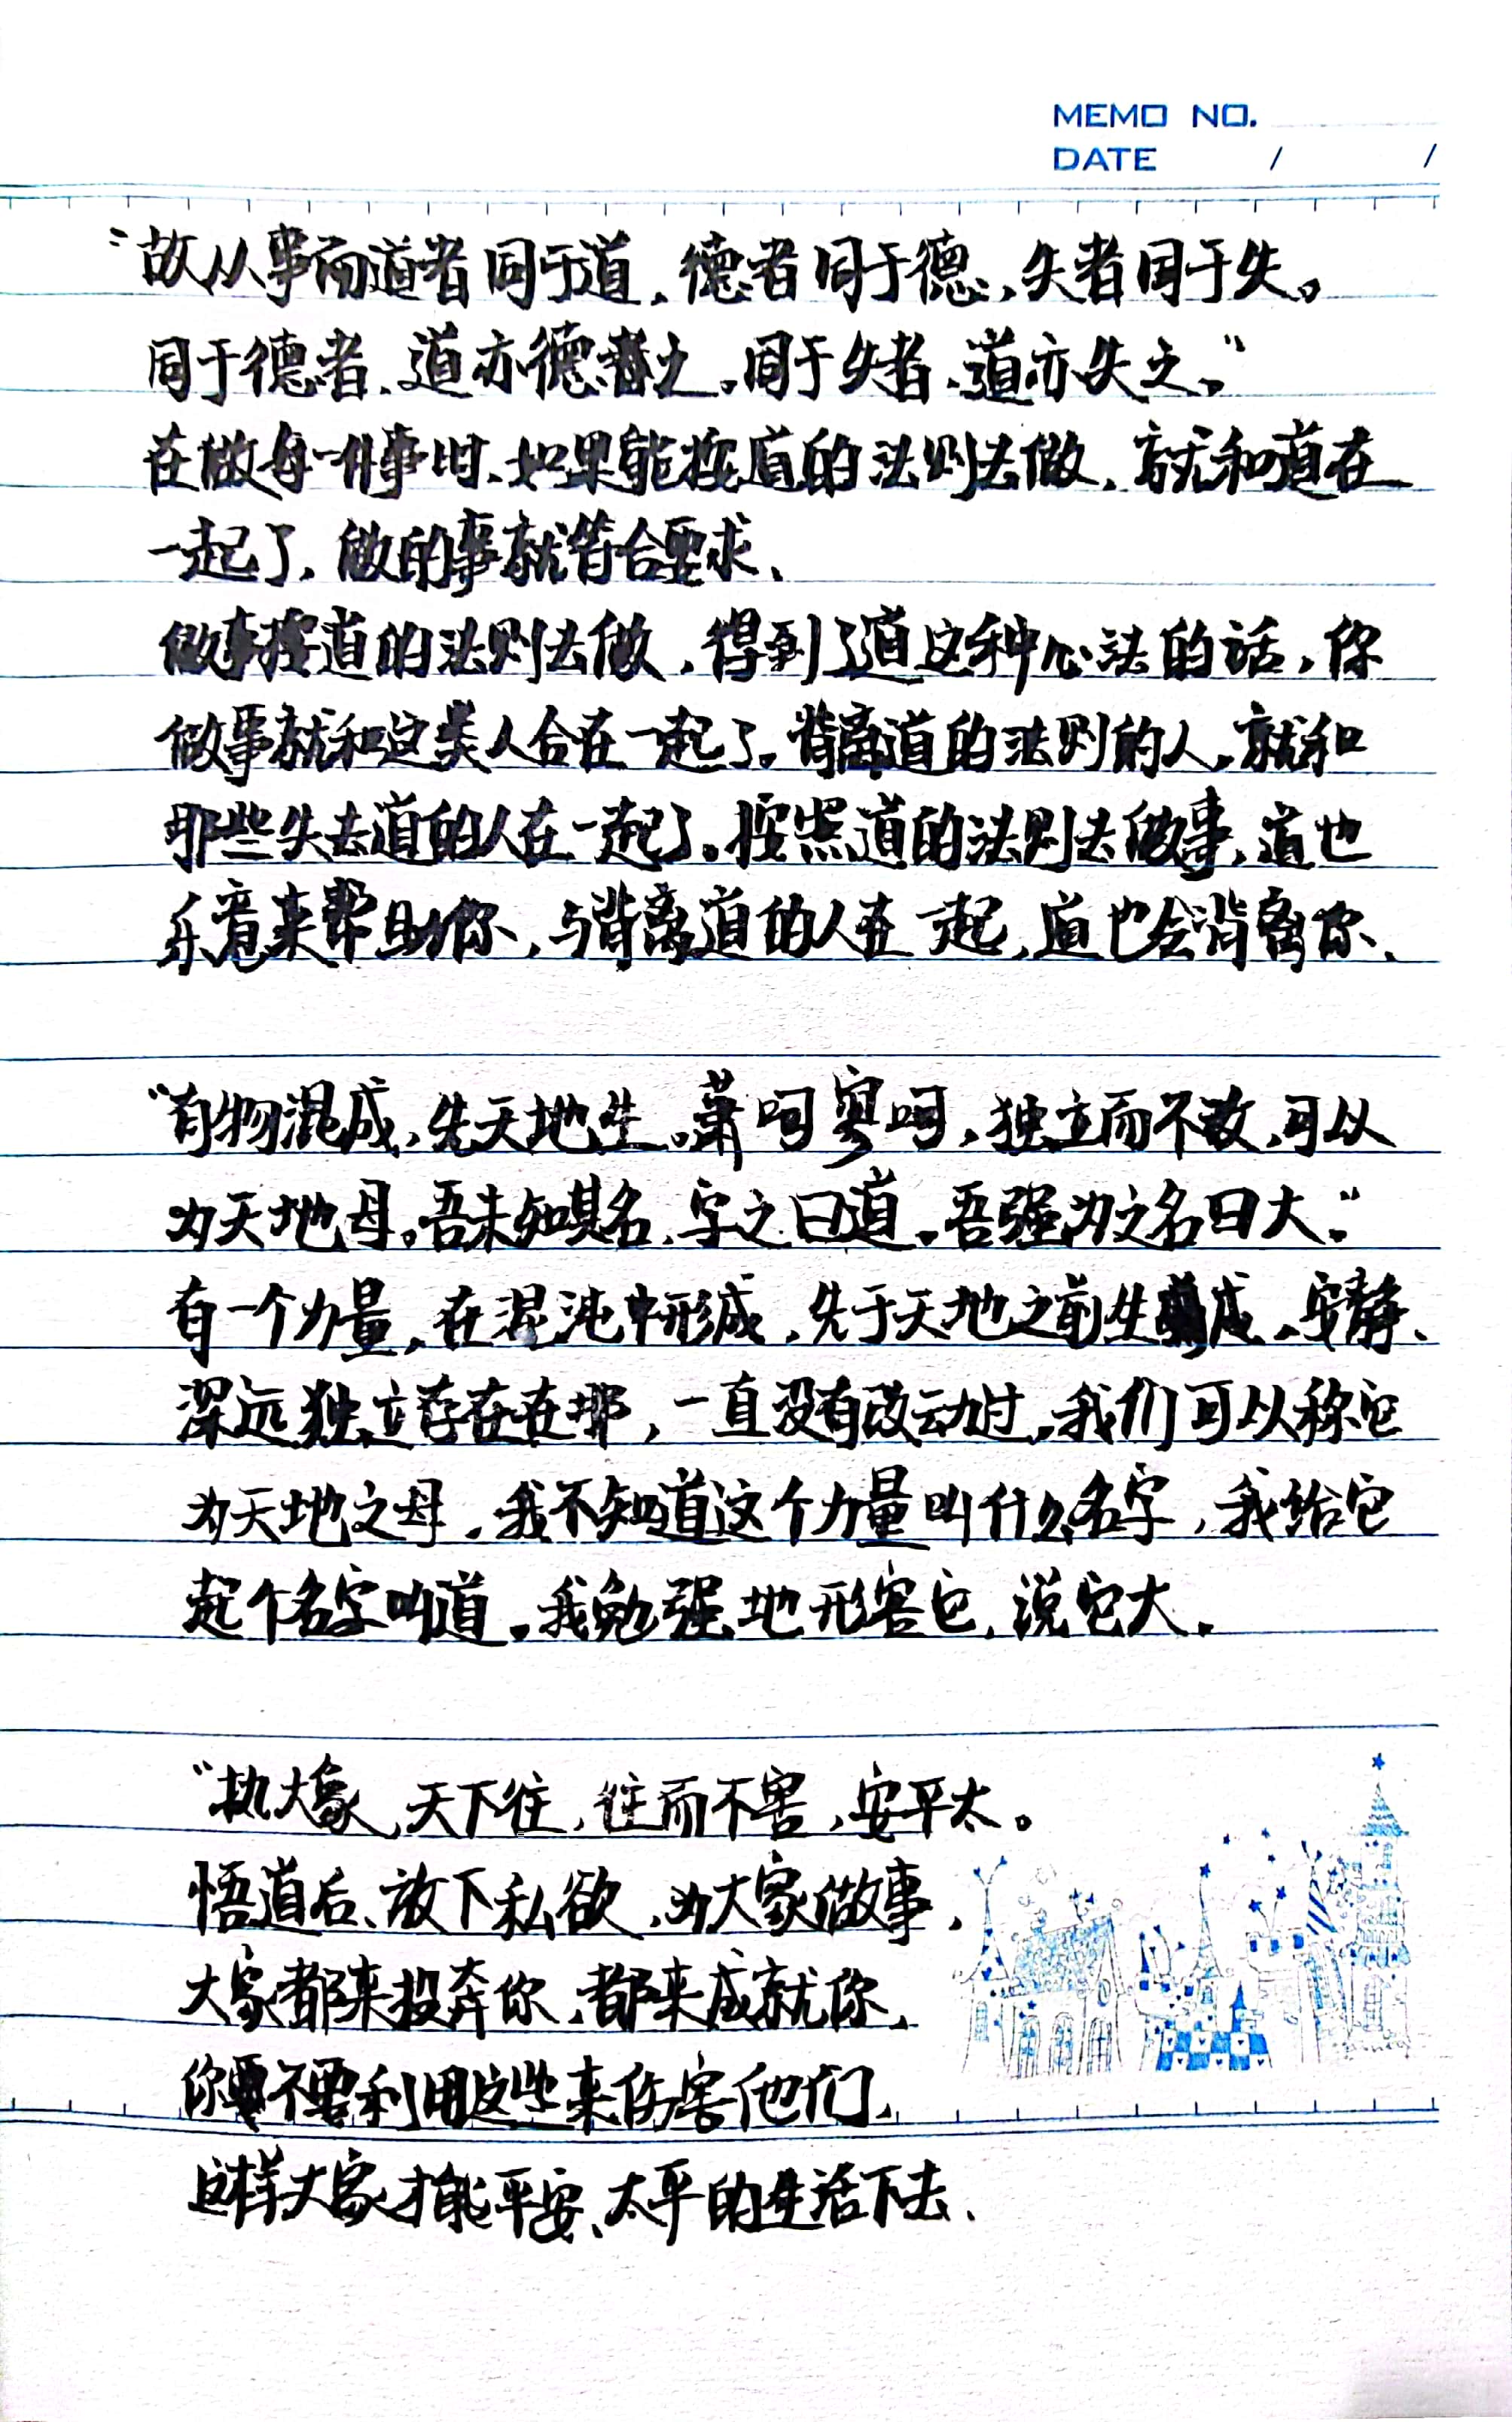 MEMO NO.
DATE / /
"故从事而道者同于道，德者同于德，失者同于失。
同于德者，道亦德之。同于失者，道亦失之。"
在做每一件事时、如果能按道的法则去做，就和道在
一起了，做的事就符合要求、
做事按道的法则去做，得到了道这种心法的话，你
做事就和这类人合在一起了。背离道的法则的人，就和
那些失去道的人在一起了。按照道的法则去做事，道也
乐意来帮助你，与背离道的人在一起，道也会背离你、
"有物混成，先天地生。萧呵寥呵，独立而不改，可以
为天地母。吾未知其名，字之曰道。吾强为之名曰大。"
有一个力量，在混沌中形成，先于天地之前生成，安静、
深远独立存在在那，一直没有改动过。我们可以称它
为天地之母，我不知道这个力量叫什么名字，我给它
起个名字叫道。我勉强地形容它，说它大。
"执大象，天下往，往而不害，安平太。
悟道后、放下私欲，为大家做事，
大家都来投奔你，都来成就你，
你不要利用这些来伤害他们，
这样大家才能平安、太平的生活下去、